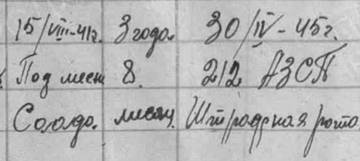 15/VIII-41г. 3 года. 30/IV-45г.
Под мест 8. 212 АЗСП
Солдо. месяц. Штрафная рота